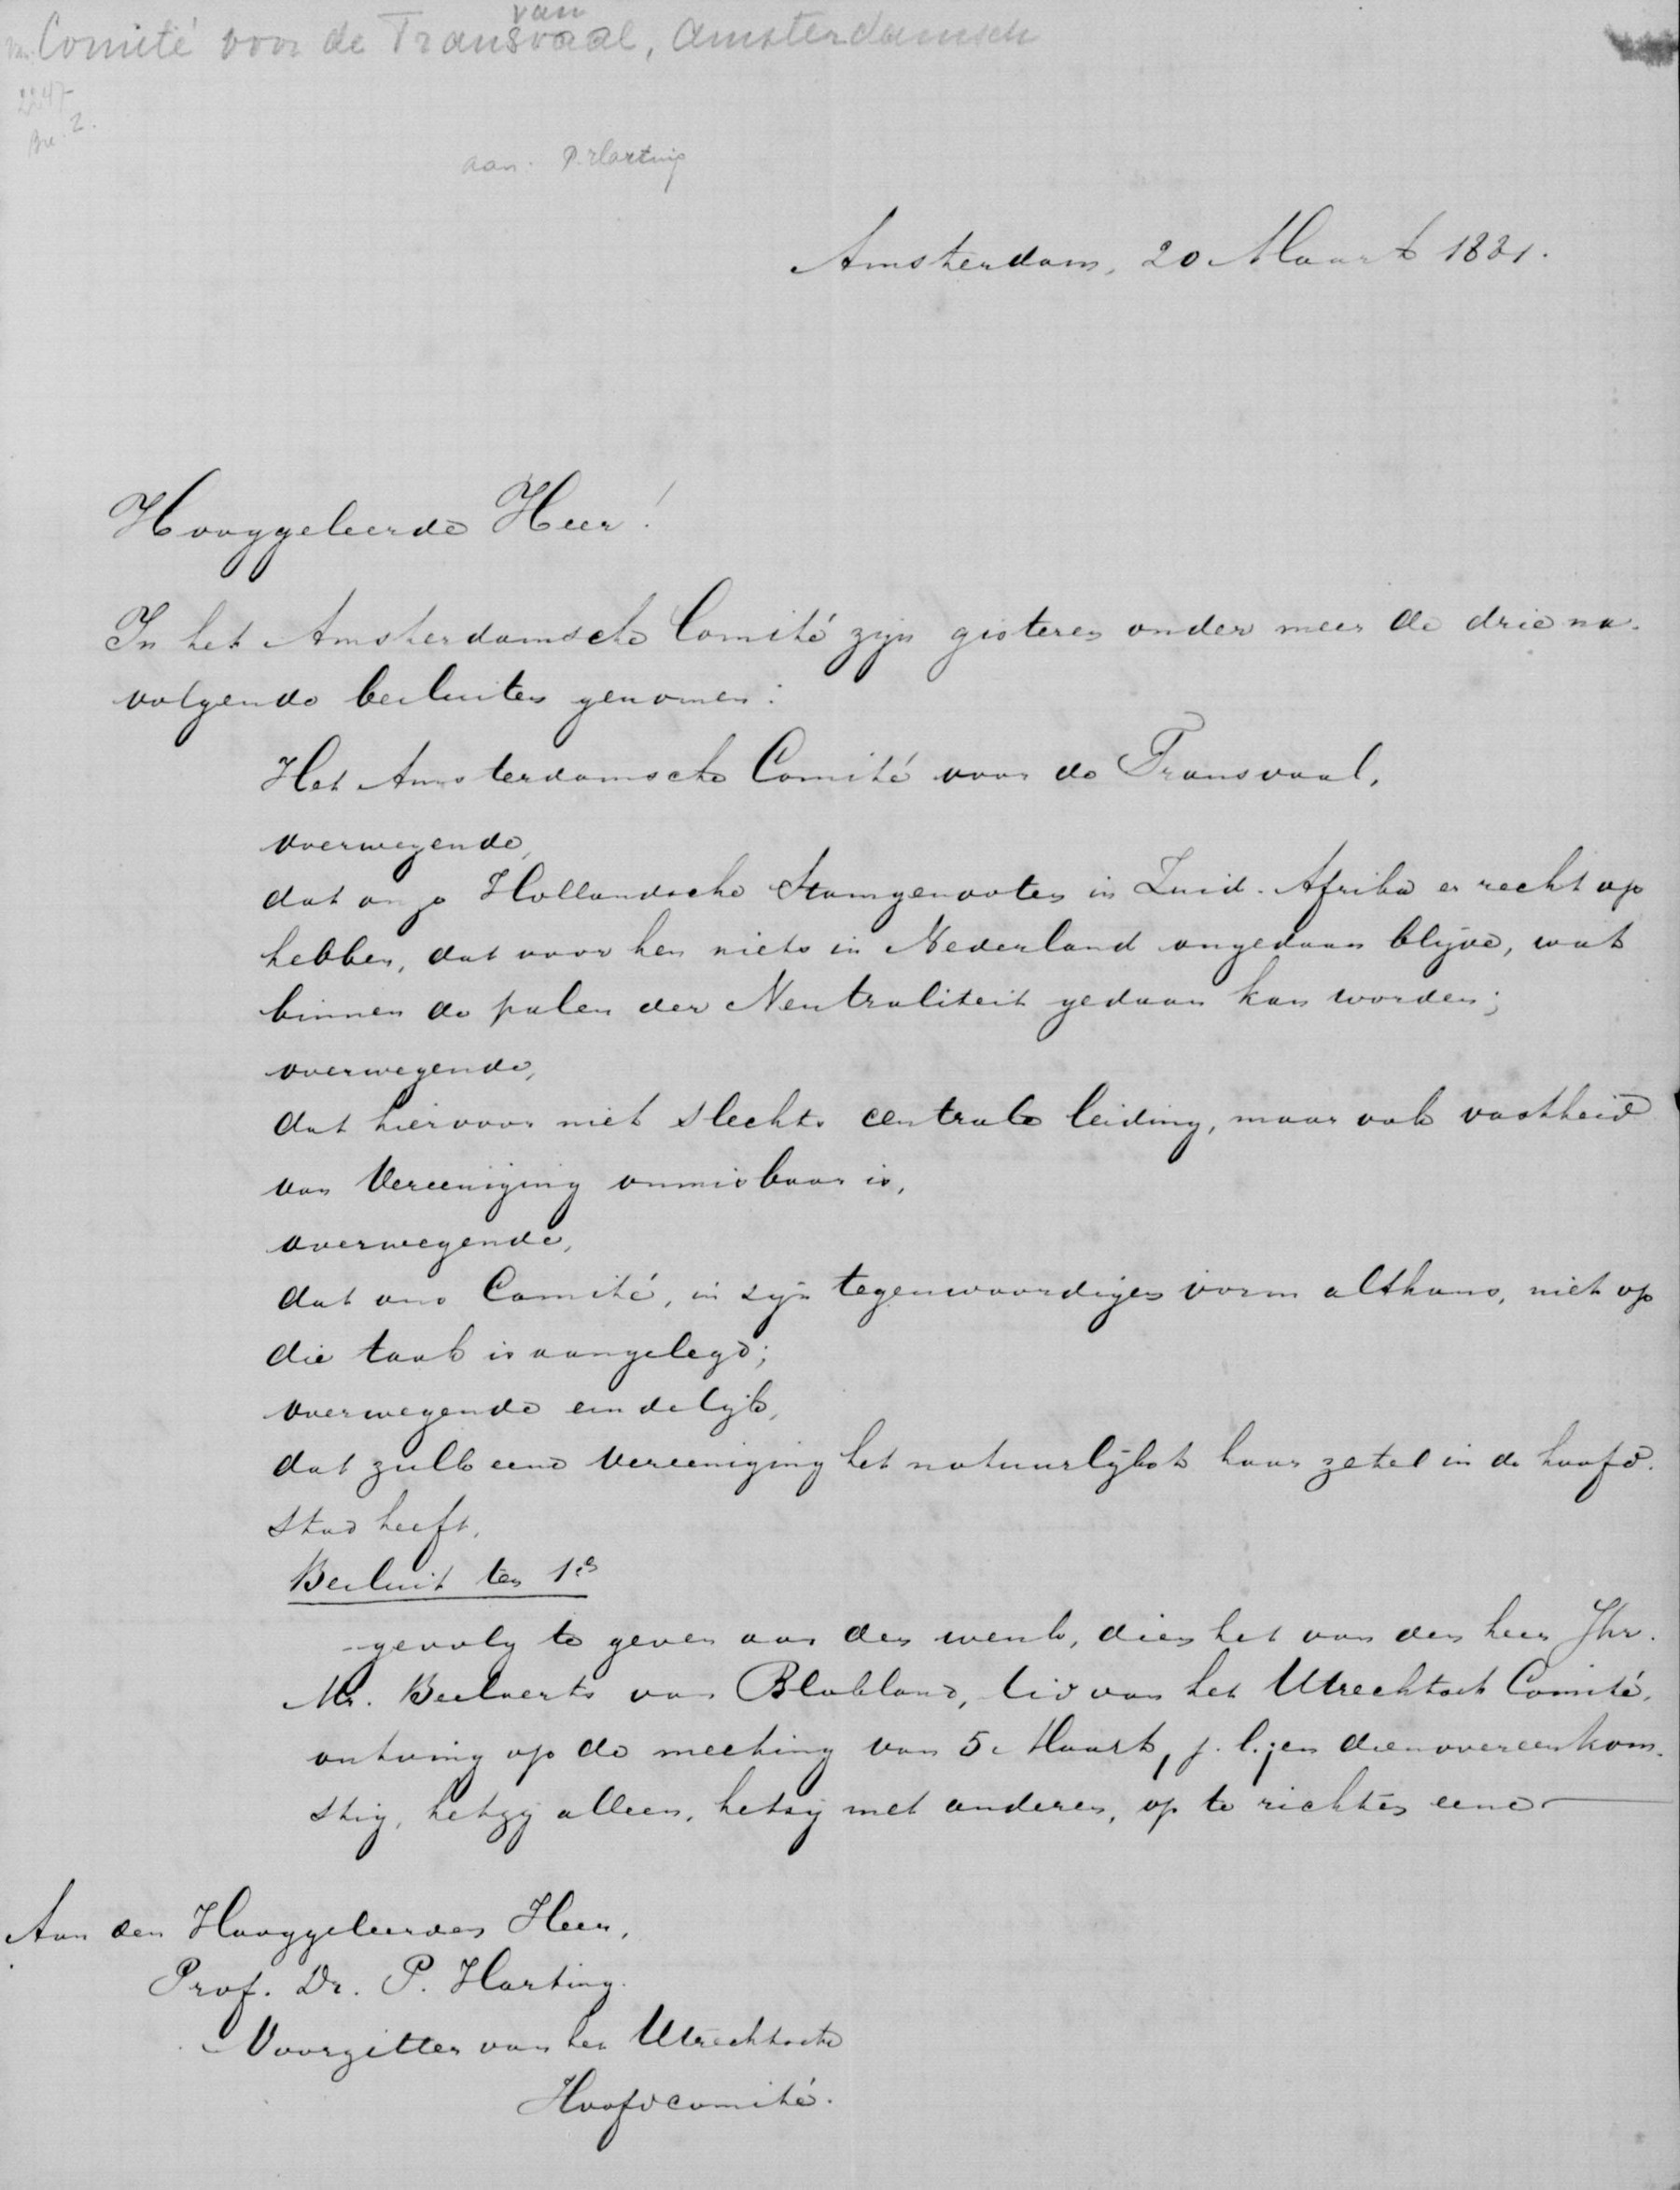 van
Comité voor de Transvaal, Amsterdamsch
2247
aan. P. Harting
Amsterdam, 20 Maart 1881.
Hooggeleerde Heer!
In het Amsterdamsche Comité zijn gisteren onder meer de drie na-
volgende besluiten genomen:
Het Amsterdamsche Comité voor de Transvaal,
overwegende,
dat onze Hollandsche Stamgenooten in Zuid-Afrika er recht op
hebben, dat voor hen niets in Nederland ongedaan blijve, wat
binnen de palen der Neutraliteit gedaan kan worden;
overwegende,
dat hiervoor niet slechts centrale leiding, maar ook vastheid
van Vereeniging onmisbaar is,
overwegende,
dat ons Comité, in zijn tegenwoordigen vorm althans, niet op
die taak is aangelegd;
overwegende eindelijk,
dat zulk eene Vereeniging het natuurlijkst haar zetel in de hoofd-
stad heeft,
Besluit ten 1e
gevolg te geven aan den wenk, dien het van den heer Jhr.
Mr. Beelaerts van Blokland, lid van het Utrechtsch Comité,
ontving op de meeting van 5 Maart, j.l. en dienovereenkom-
stig, hetzij alleen, hetzij met anderen, op te richten eene
Aan den Hooggeleerden Heer,
Prof. Dr. P. Harting.
Voorzitter van het Utrechtsche
Hoofdcomité.